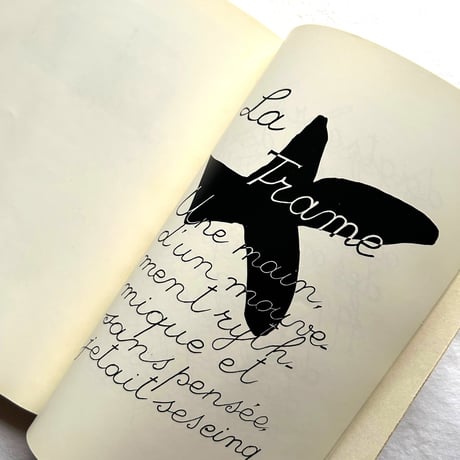 La
Trame
Une main,
d'un mouve-
ment ryth-
mique et
sans pensée,
jetait ses cinq